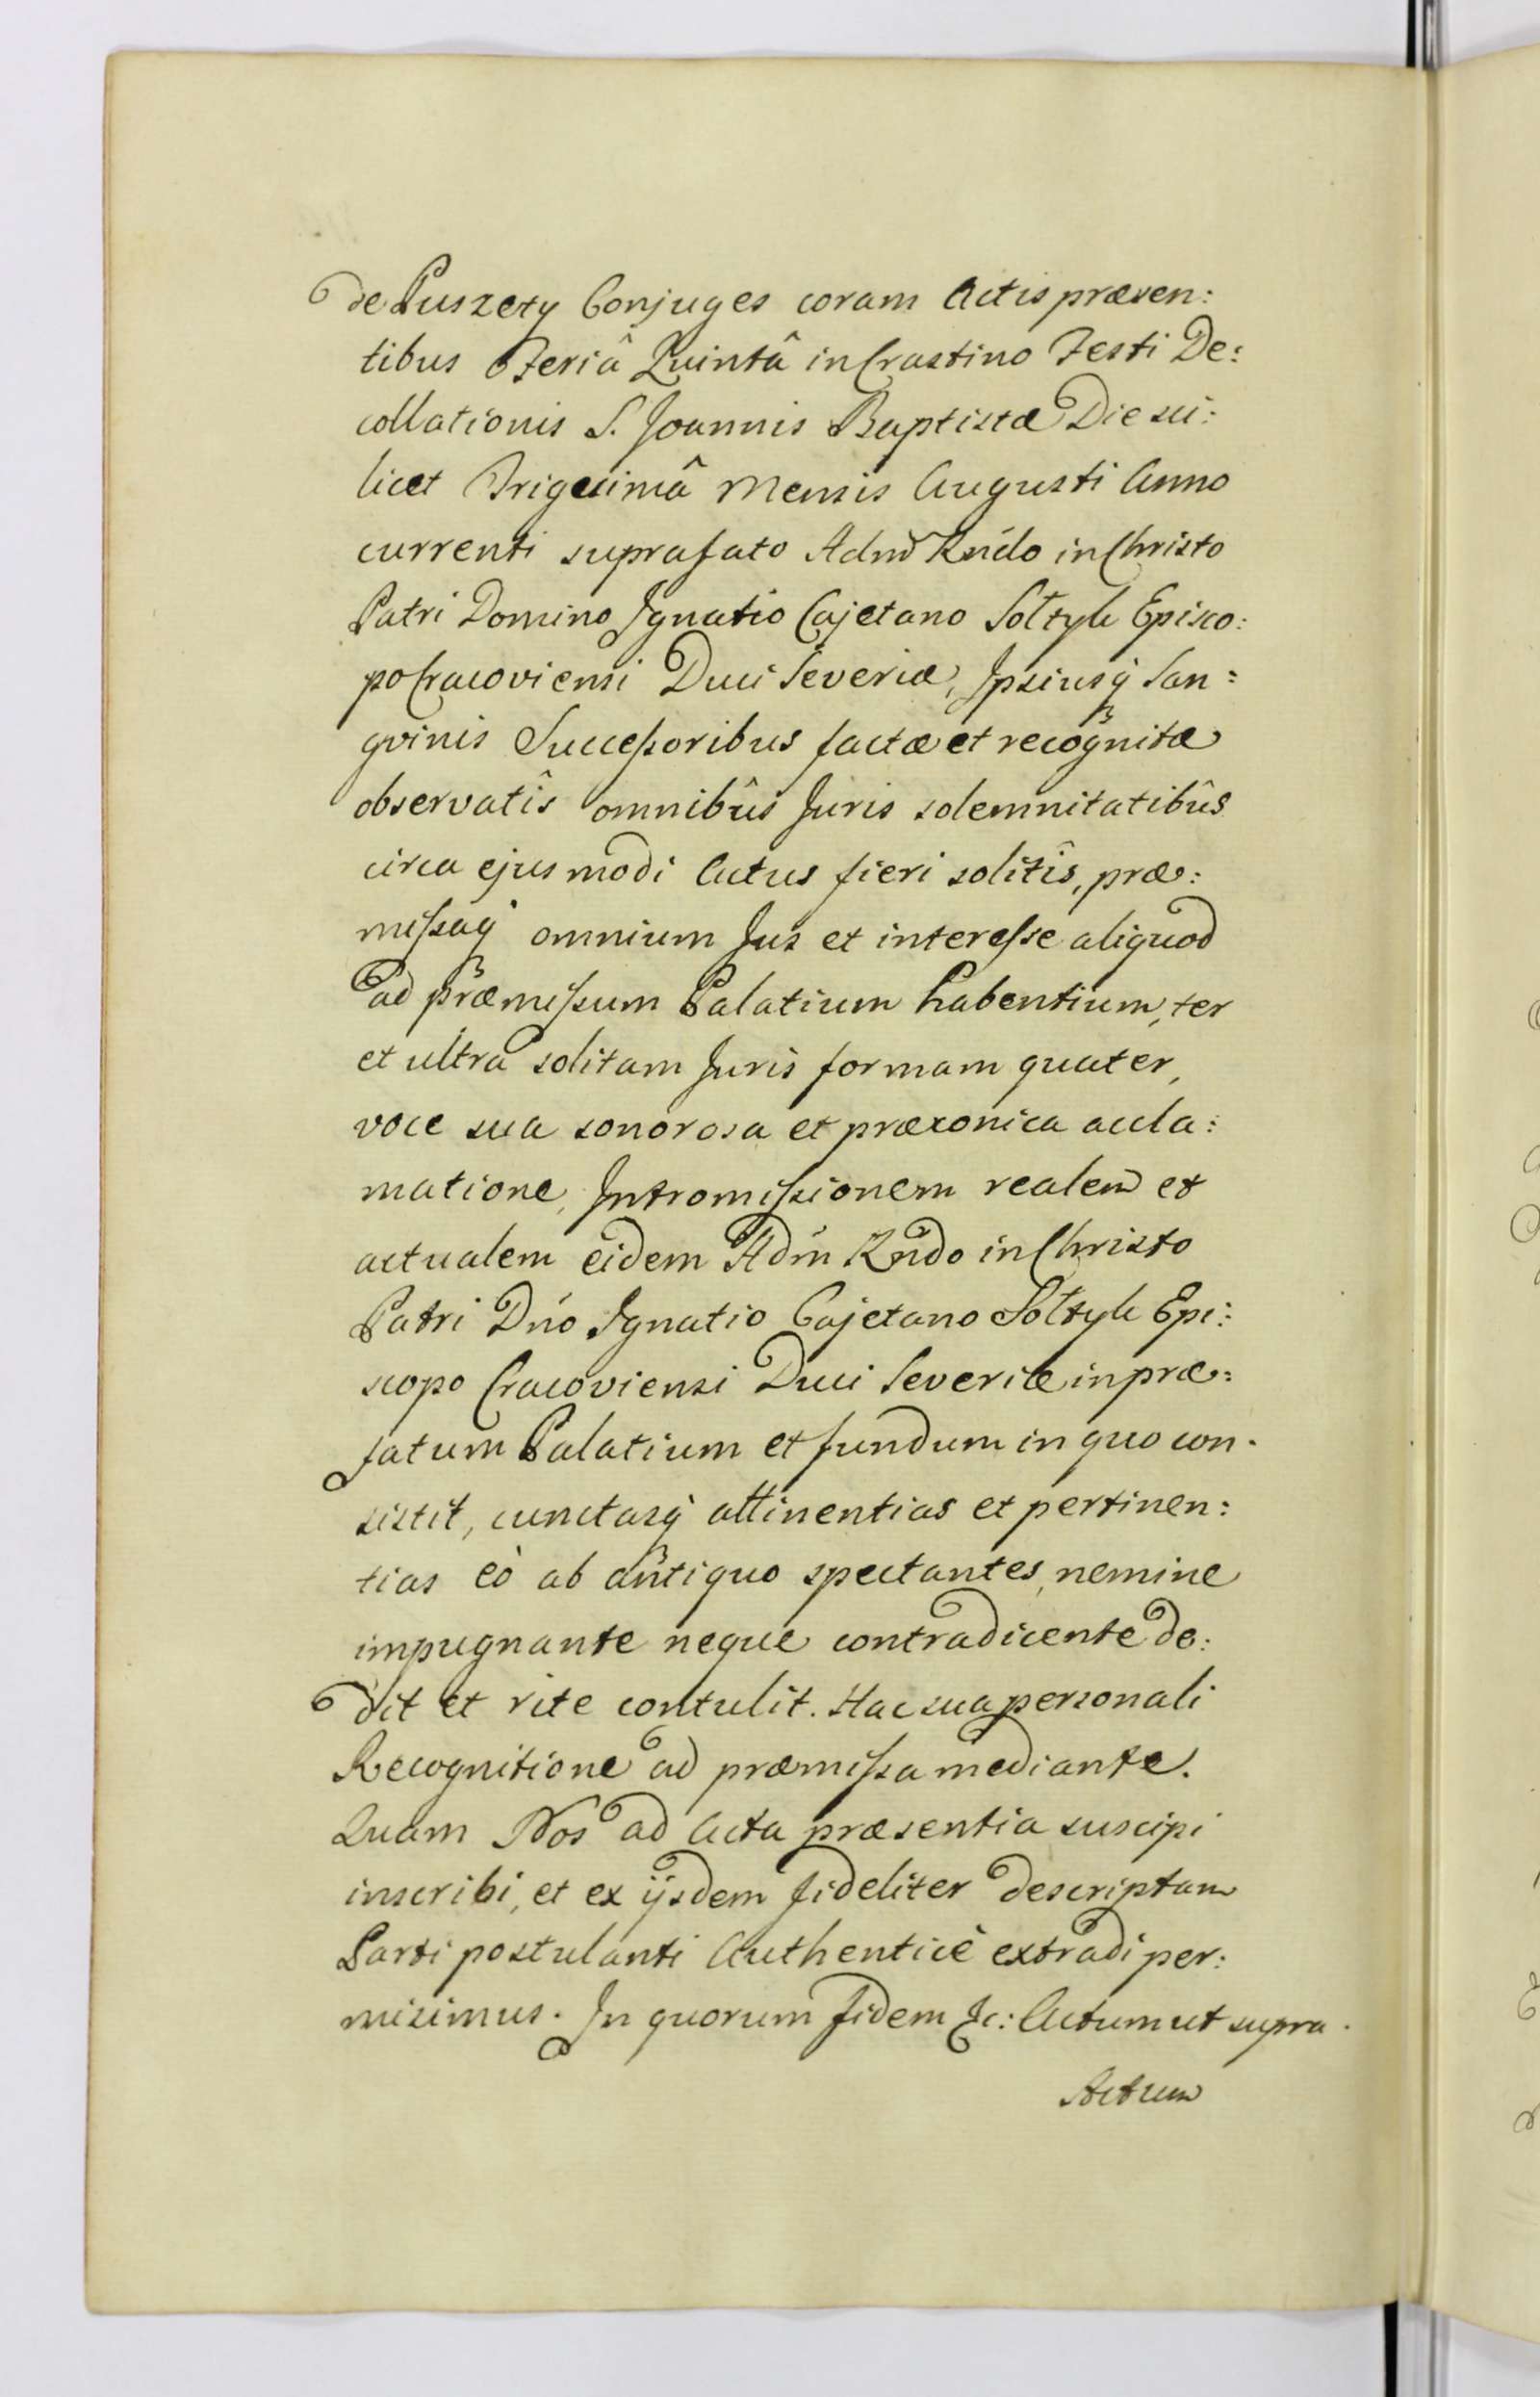 de Puszety Conjuges coram Actis præsen:
tibus Feriâ Quintâ in Crastino Festi De:
collationis S. Joannis Baptistæ Die sci:
licet Trigesimâ Mensis Augusti Anno
currenti suprafato Adm̃ Rńdo in Christo
Patri Domino Ignatio Cajetano Sołtyk Episco:
po Cracoviensi Duci Severiæ, Ipsiusq́ San:
gvinis Successoribus factæ et recognitæ
observatîs omnibûs Juris solemnitatibûs
circa ejusmodi Actus fieri solitîs, præ:
missaq́ omnium Jus et interesse aliquod
ad præmissum Palatium habentium, ter
et ultra solitam Juris formam quater,
voce sua sonorosa et præconica accla:
matione, Intromissionem realem et
actualem eidem Adm̃ Rńdo in Christo
Patri Dńo Ignatio Cajetano Sołtyk Epi:
scopo Cracoviensi Duci Severiæ in præ:
fatum Palatium et fundum in quo con:
sistit, cunctasq́ attinentias et pertinen:
tias eò ab antiquo spectantes, nemine
impugnante neque contradicente de:
dit et rite contulit. Hac sua personali
Recognitione ad præmissa mediante.
Quam Nos ad Acta præsentia suscipi
inscribi, et ex ijsdem fideliter descriptam
Parti postulanti Authenticè extradi per:
misimus. In quorum fidem &c: Actum ut supra.
Actum